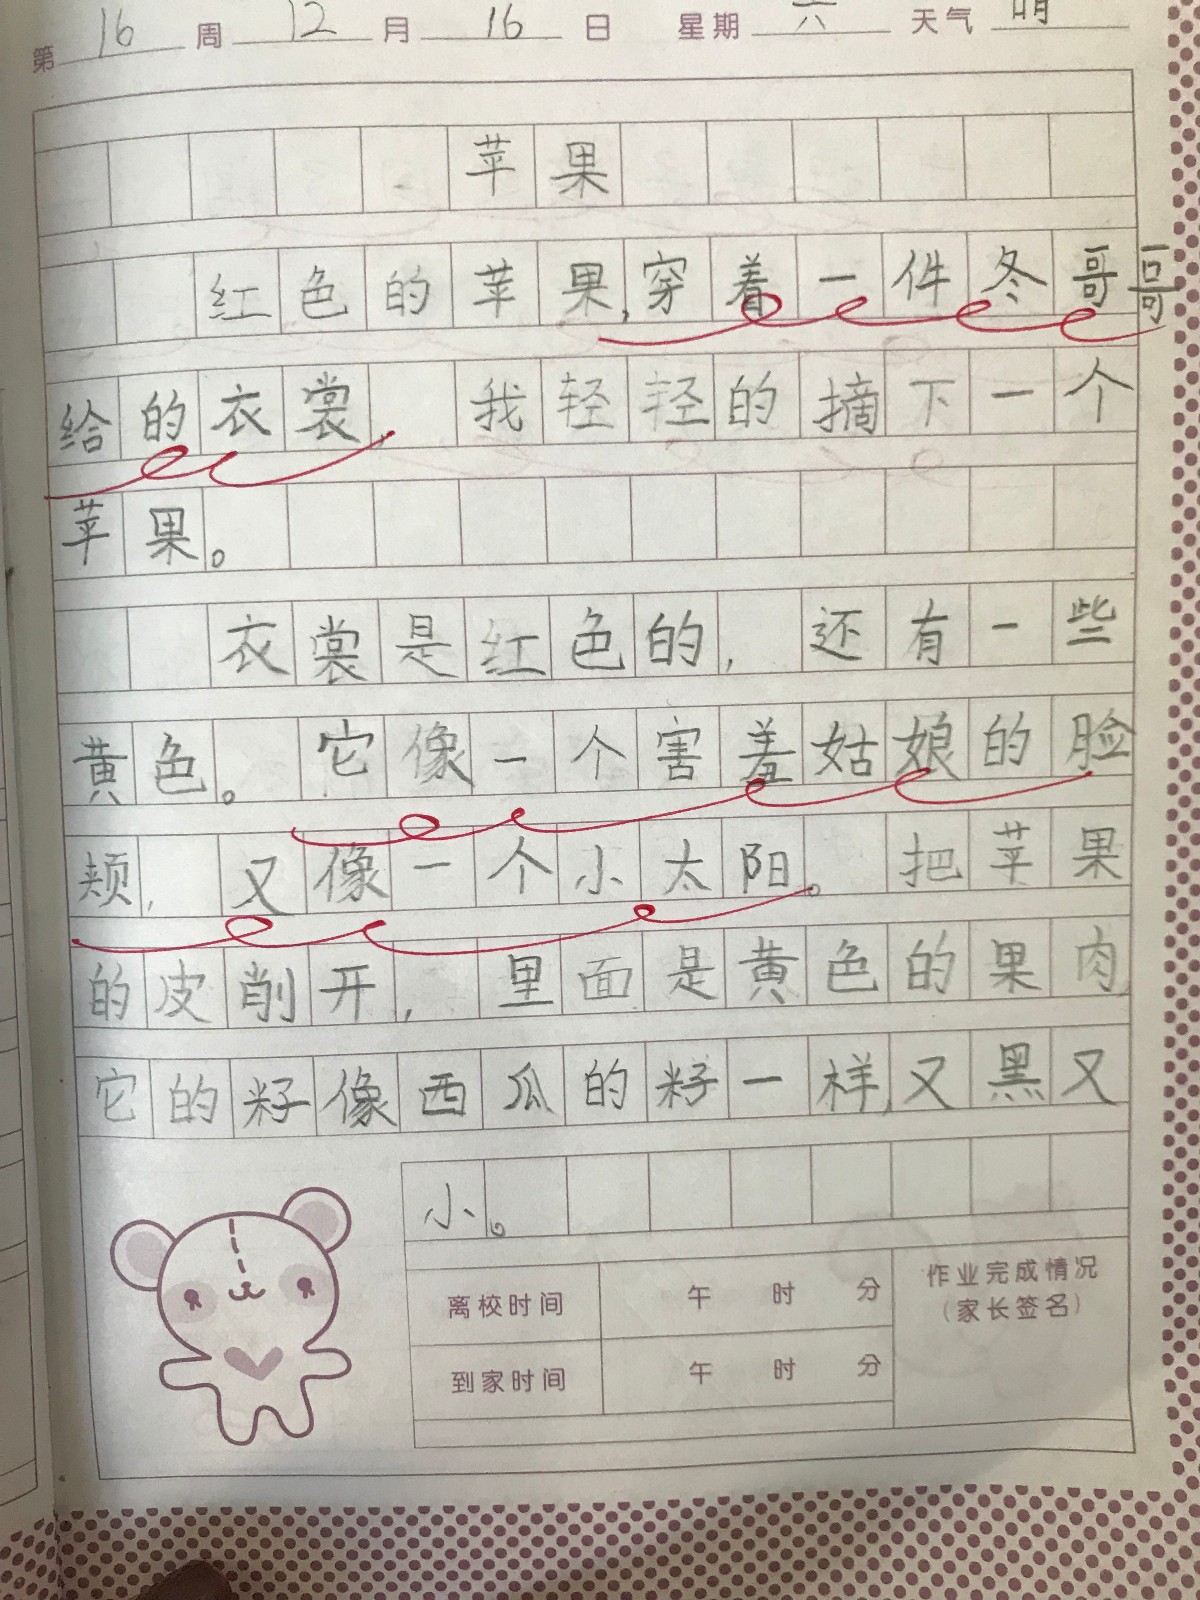 第 16 周 12 月 16 日 星期 六 天气 晴
苹果
红色的苹果,穿着一件冬哥哥
给的衣裳, 我轻轻的摘下一个
苹果。
衣裳是红色的, 还有一些
黄色。 它像一个害羞姑娘的脸
颊, 又像一个小太阳。 把苹果
的皮削开, 里面是黄色的果肉
它的籽像西瓜的籽一样,又黑又
小。
离校时间 午 时 分
到家时间 午 时 分
作业完成情况
(家长签名)